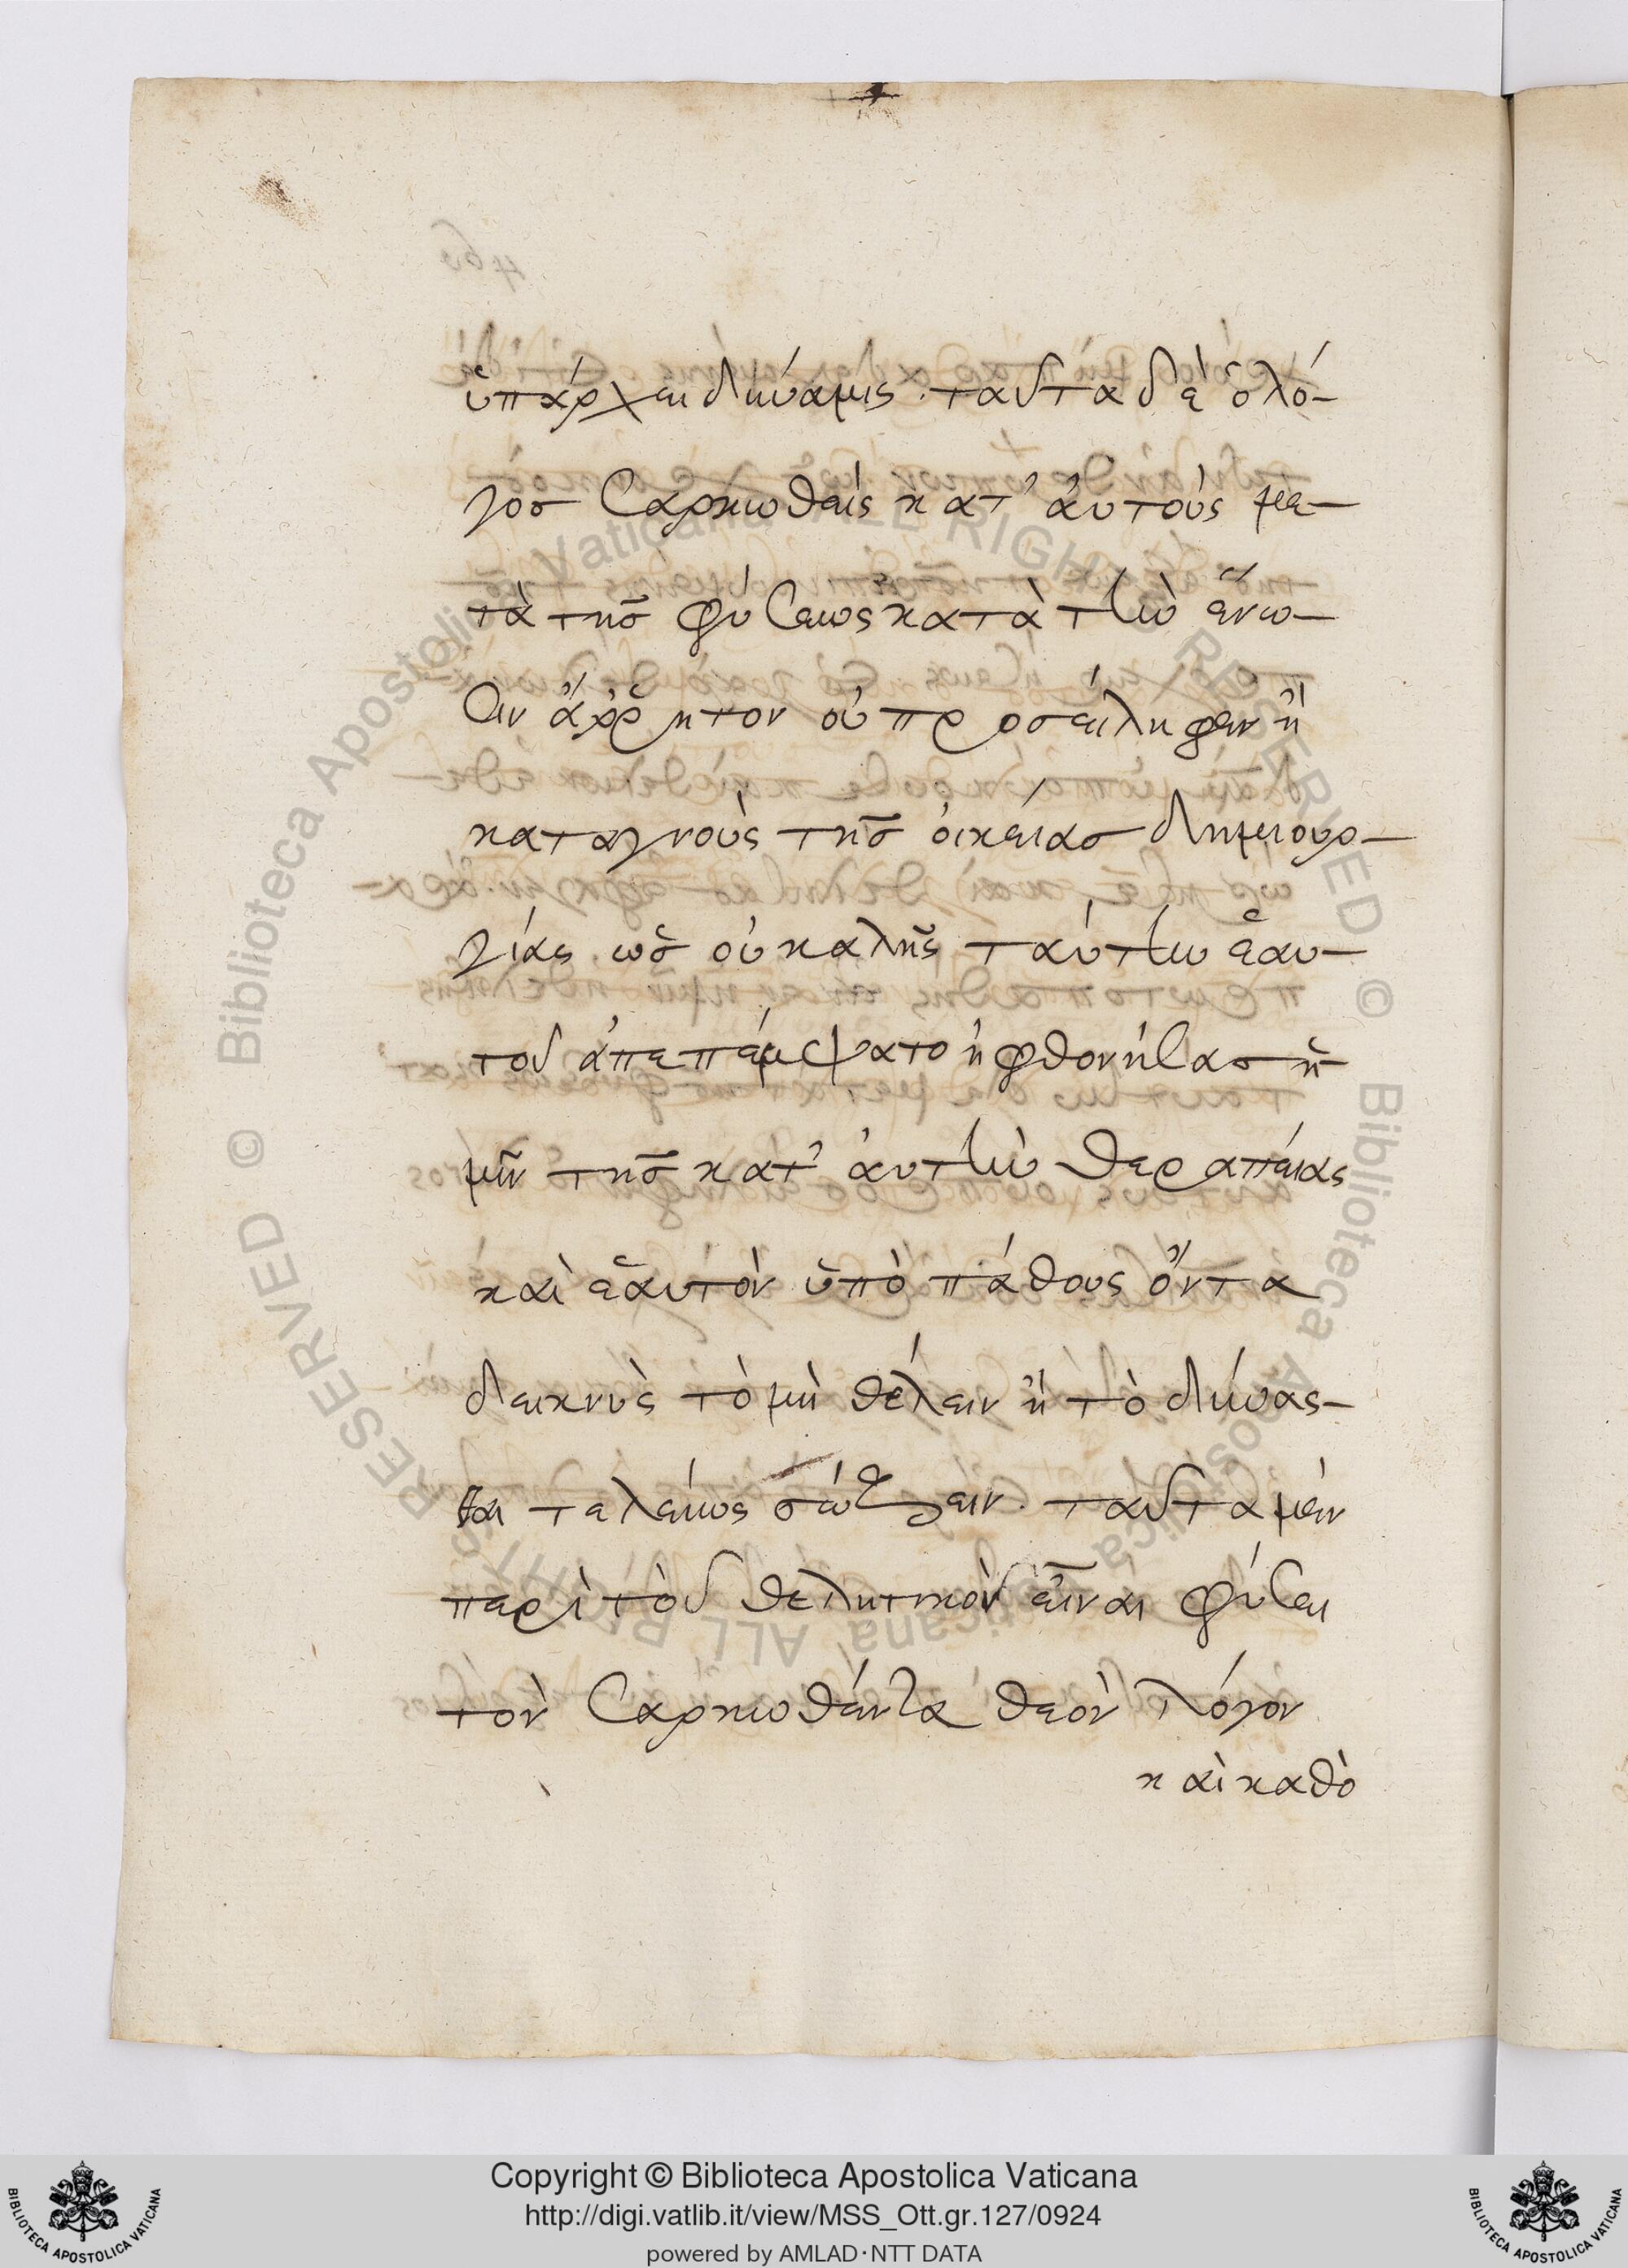 ὑπάρχει δύναμις. ταῦτα δὲ ὁ λό-
γος σαρκωθεὶς κατ' αὐτοὺς με-
τὰ τῆς φύσεως κατὰ τὴν ἕνω-
σιν ἄῤῥητον οὐ προσείληφεν ἢ
καταγνοὺς τῆς οἰκείας δημιουρ-
γίας. ὡς οὐ καλῆς ταύτην ἑαυ-
τοῦ ἀπεπέμψατο ἢ φθονήσας ἡ-
μῖν τῆς κατ' αὐτὴν θεραπείας
καὶ ἑαυτὸν ὑπὸ πάθους ὄντα
δεικνὺς τὸ μὴ θέλειν ἢ τὸ δύνας-
θαι τελείως σώζειν. ταῦτα μὲν
περὶ τοῦ θελητικὸν εἶναι φύσει
τὸν σαρκωθέντα θεὸν λόγον
καὶ καθὸ
Copyright © Biblioteca Apostolica Vaticana
http://digi.vatlib.it/view/MSS_Ott.gr.127/0924
powered by AMLAD·NTT DATA
BIBLIOTECA APOSTOLICA VATICANA
BIBLIOTECA APOSTOLICA VATICANA